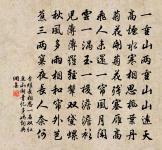 一重山兩重山山遠天
高煙水寒相思楓葉丹
菊花開菊花殘塞雁高
飛人未還一簾風月閑
雲一緺玉一梭澹澹衫
兒薄薄羅輕顰雙黛螺
秋風多雨相和簾外芭
蕉三兩窠夜長人奈何
李煜長相思一名雙紅
豆山漸青憶多嬌